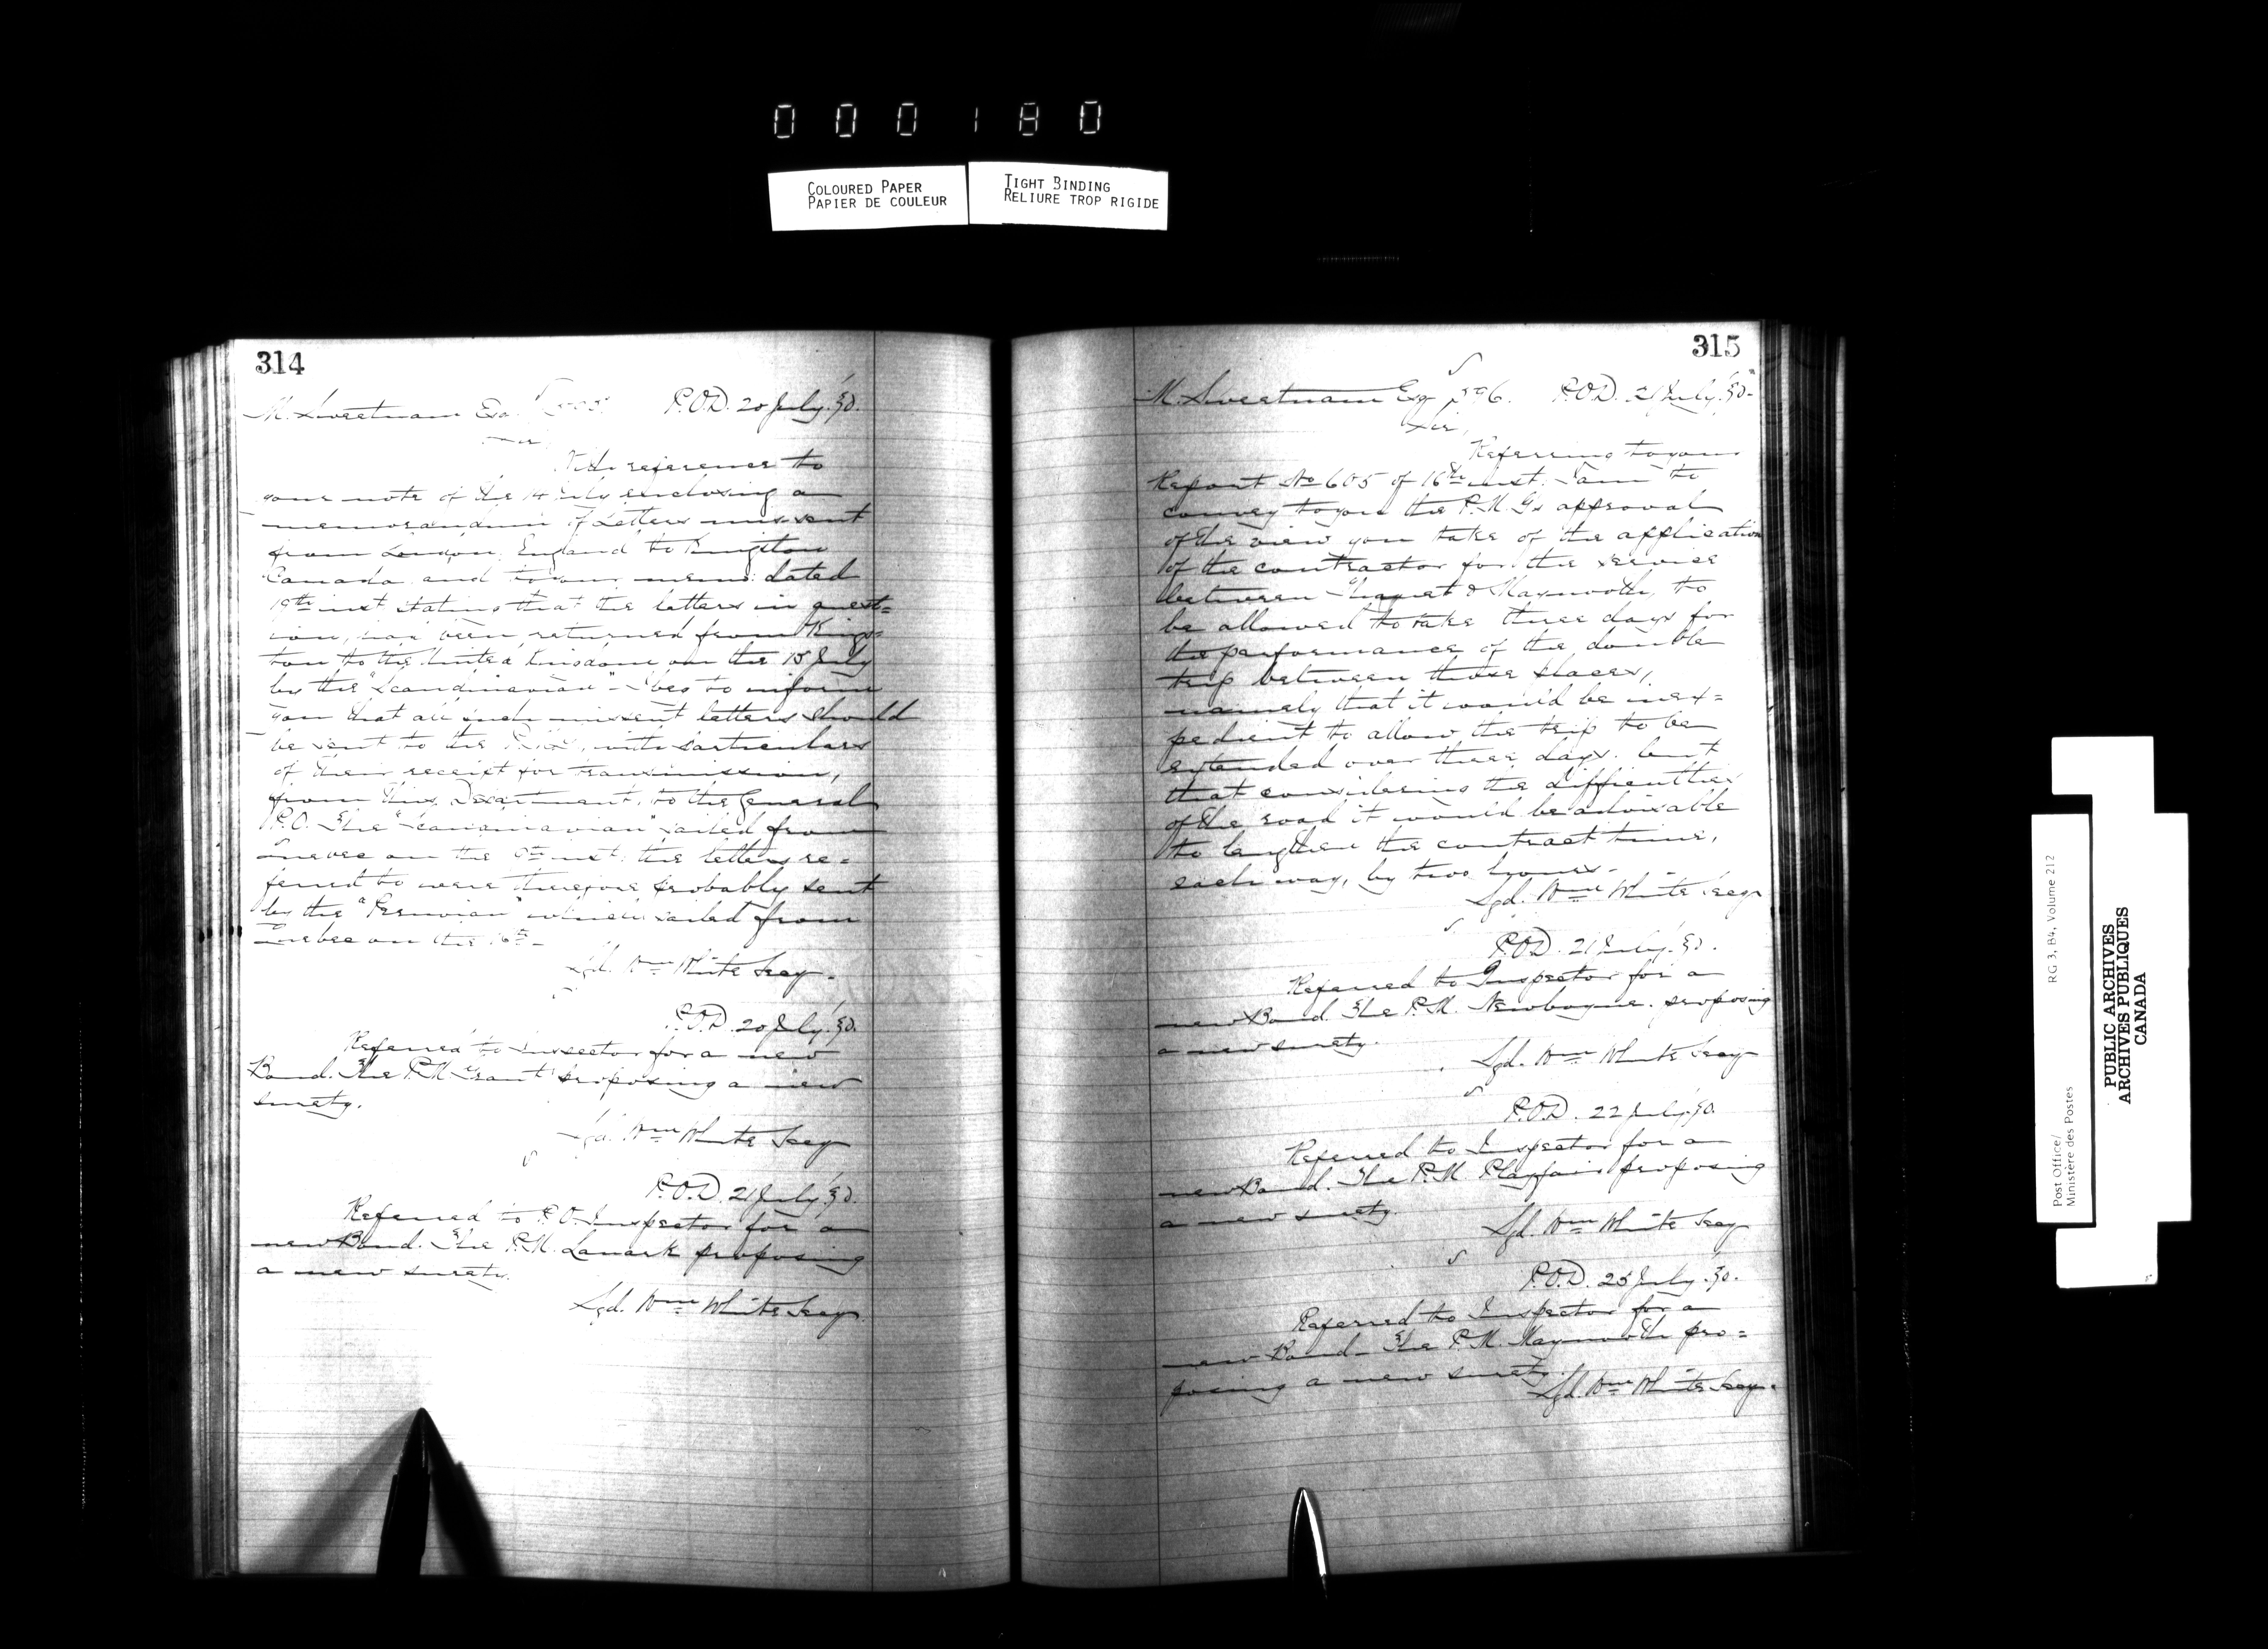 000180
COLOURED PAPER
PAPIER DE COULEUR
TIGHT BINDING
RELIURE TROP RIGIDE
314
M. Sweetnam Esq. P.O.D. 20 July '80.
Sir
With reference to
your note of the 14 July enclosing a
memorandum of Letters mis-sent
from London, England to Kingston
Canada and to your memo: dated
19th inst stating that the letters in quest=
ion, had been returned from Kings=
ton to the United Kingdom on the 15 July
by the "Scandinavian" - I beg to inform
you that all such missent letters should
be sent to the with particulars
of their receipt for transmission,
from this Department, to the General
P.O. The "Scandinavian" sailed from
Quebec on the inst: the letters re=
ferred to were therefore probably sent
by the "Peruvian" which sailed from
Quebec on the 16th -
Sgd. Wm White Secy.
P.O.D. 20 July '80.
Referred to Inspector for a new
Bond. The P.M. Grant proposing a new
surety.
Sgd. Wm White Secy
P.O.D. 21 July '80.
Referred to P.O. Inspector for a
new Bond. The P.M. Lanark proposing
a new surety.
Sgd. Wm White Secy
315
M. Sweetnam Esq 596. P.O.D. 21 July '80-
Sir,
Referring to your
Report No 605 of 16th inst. I am to
convey to you the P.M.G's approval
of the view you take of the application
of the contractor for the service
between & Maynooth, to
be allowed to take three days for
the performance of the double
trip between those places,
namely that it would be inex=
pedient to allow the trip to be
extended over three days. but
that considering the difficulties
of the road it would be advisable
to lengthen the contract time,
each way, by two hours-
Sgd. Wm White Secy
P.O.D. 21 July '80.
Referred to Inspector for a
new Bond. The P.M. Newboyne. proposing
a new surety.
Sgd. Wm White Secy
P.O.D. 22 July '80.
Referred to Inspector for a
new Bond. The P.M. Playfair proposing
a new surety.
Sgd. Wm White Secy
P.O.D. 23 July '80.
Referred to Inspector for a
new Bond- The P.M. Maynooth pro=
posing a new surety.
Sgd. Wm White Secy.
Post Office/ RG 3, B4, Volume 212
Ministère des Postes
PUBLIC ARCHIVES
ARCHIVES PUBLIQUES
CANADA